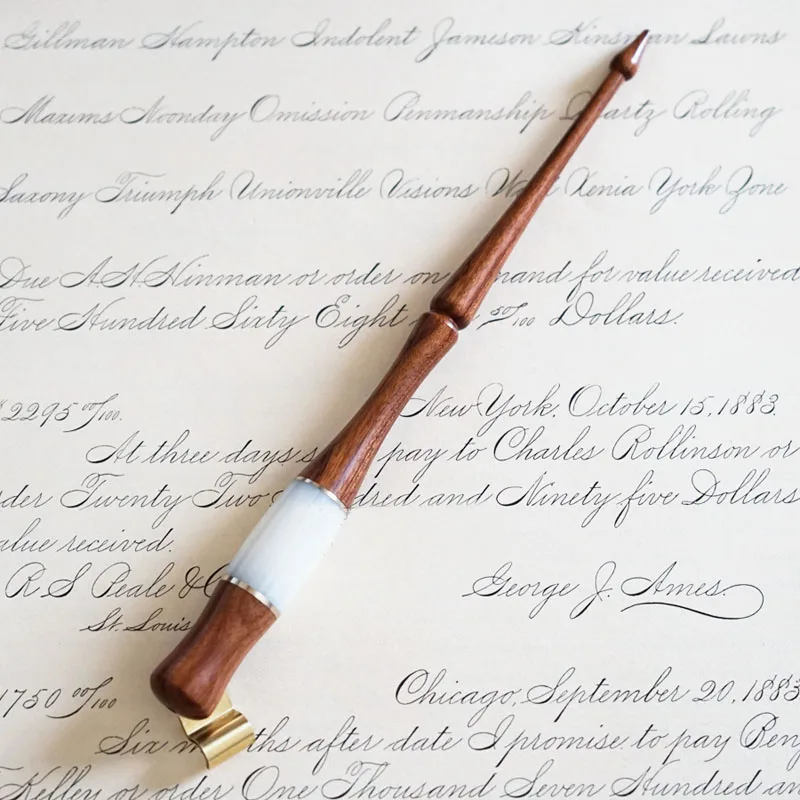 Gillman Hampton Indolent Jameson Kinsman Lawns
Maxims Noonday Omission Penmanship Quartz Rolling
Saxony Triumph Unionville Visions Xenia York Zone
Due A H Hinman or order on mand for value received
Five Hundred Sixty Eight 50/100 Dollars.
$2295 00/100. New York, October 15, 1883.
At three days s pay to Charles Rollinson or
order Twenty Two dred and Ninety five Dollars
value received.
R S Peale & C George J. Ames.
St. Louis
1750 00/100 Chicago, September 20, 1883
Six m ths after date I promise to pay Benj
Kelley or order One Thousand Seven Hundred an